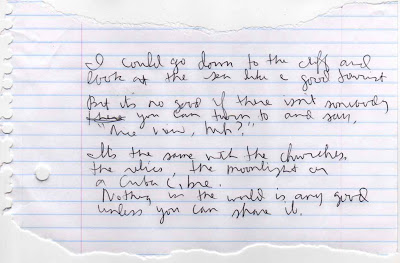 I could go down to the cliff and
look at the sea like a good tourist
But it's no good if there isn't somebody
there you can turn to and say,
"Nice view, huh?"
It's the same with the churches,
the relics, the moonlight on
a Cuba Libre.
Nothing in the world is any good
unless you can share it.